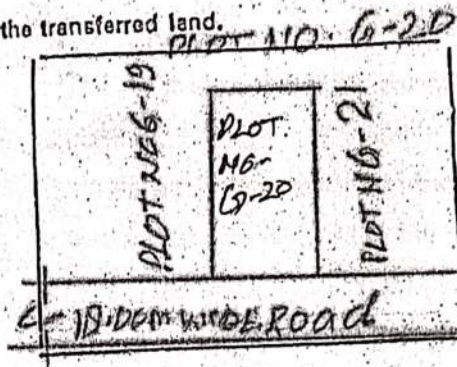 the transferred land.
PLOT NO. G-20
PLOT NO G-19
PLOT
NO-
G-20
PLOT NG-21
18.00M WIDE ROAD